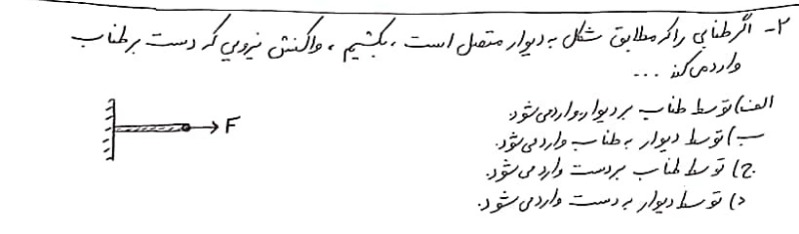 ۲- اگر طنابی را که مطابق شکل به دیوار متصل است، بکشیم، واکنش نیرویی که دست بر طناب
وارد می کند ...
الف) توسط طناب بر دیوار وارد می شود.
ب) توسط دیوار به طناب وارد می شود.
ج) توسط طناب بر دست وارد می شود.
د) توسط دیوار به دست وارد می شود.
F